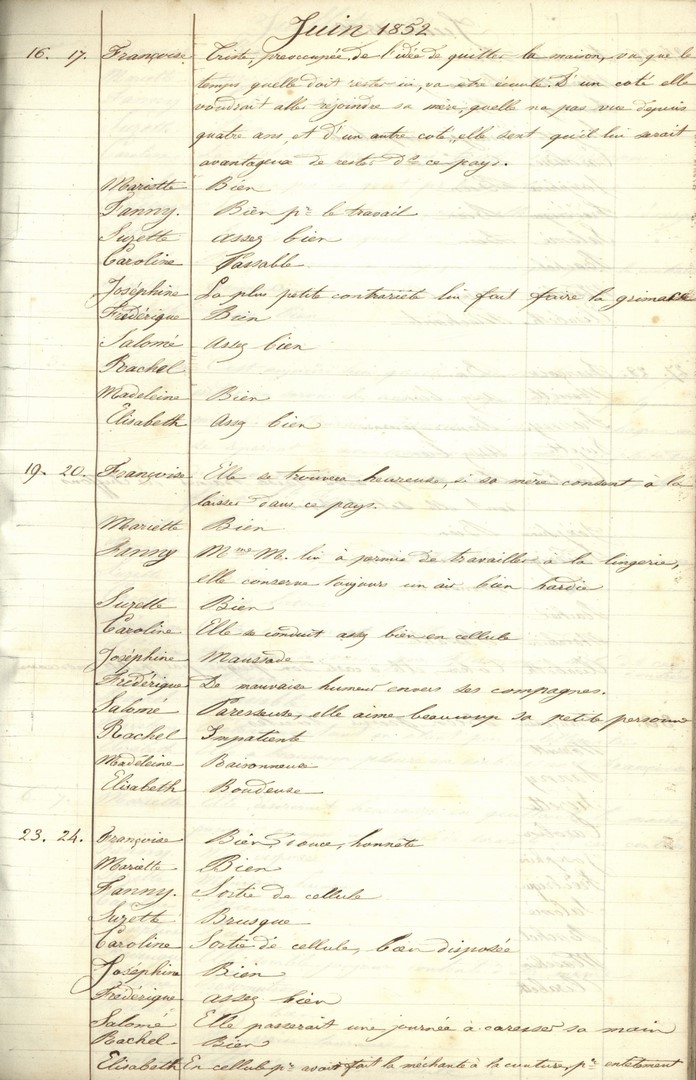 Juin 1852
16. 17. Françoise Triste, preoccupée de l'idée de quitter la maison, vu que le
temps quelle doit rester ici, va être écoulé. D'un coté elle
voudrait aller rejoindre sa mère, quelle na pas vue depuis
quatre ans, et d'un autre coté, elle sent qu'il lui serait
avantageux de rester ds ce pays.
Mariette Bien
Fanny. Bien pr le travail
Suzette assez bien
Caroline Passable
Joséphine La plus petite contrariété lui fait faire la grimace
Frédérique Bien
Salomé assez bien
Rachel
Madeleine Bien
Elisabeth Assez bien
19. 20. Françoise Elle se trouvera heureuse, si sa mère consent à la
laisser dans ce pays.
Mariette Bien
Fanny Mme M. lui à permis de travailler à la lingerie,
elle conserve toujours un air bien hardie
Suzette Bien
Caroline Elle se conduit assez bien en cellule
Joséphine Maussade
Frédérique De mauvaise humeur envers ses compagnes.
Salomé Paresseuse, elle aime beaucoup sa petite personne
Rachel Impatiente
Madeleine Raisonneuse
Elisabeth Boudeuse
23. 24. Françoise Bien douce, honnête
Mariette Bien
Fanny. Sortie de cellule
Suzette Brusque
Caroline Sortie de cellule, bien disposée
Joséphine Bien
Frédérique assez bien
Salomé Elle passerait une journée à caresser sa main
Rachel Bien
Elisabeth En cellule pr avoir fait la méchante à la couture, pr entêtement